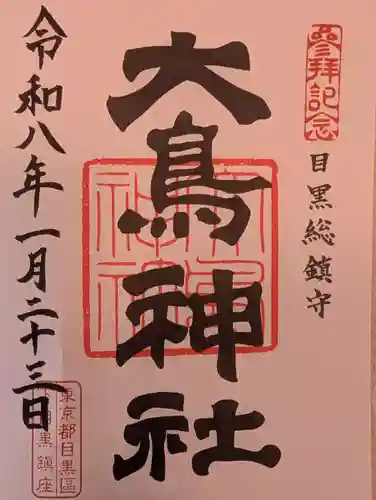 參拜記念
目黒総鎮守
大鳥神社
令和八年一月二十三日
東京都目黒區
下目黒鎮座